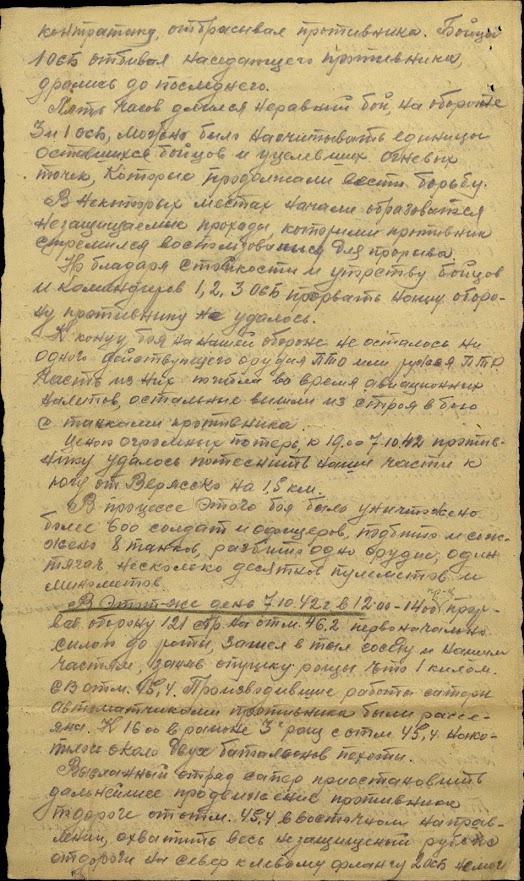 контратаку, отбрасывая противника. Бойцы
1 осб отбивая наседающего противника,
дрались до последнего.
Пять часов длился неравный бой, на обороне
3 и 1 осб, можно было насчитывать единицы
оставшихся бойцов и уцелевших огневых
точек, которые продолжали вести борьбу.
В некоторых местах начали образоватся
незащищаемые проходы, которыми противник
стремился воспользоваться для прорыва.
Но благодаря стойкости и упорству бойцов
и командиров 1, 2, 3 осб прорвать нашу оборо-
ну противнику не удалось.
К концу боя на нашей обороне не осталось ни
одного действующего орудия ПТО или ружья ПТР
Часть из них погибла во время авиационных
налетов, остальные вышли из строя в бою
с танками противника.
Ценой огромных потерь, к 19.00 7.10.42 против-
нику удалось потеснить наши части к
югу от Верясско на 1,5 км.
В процессе этого боя было уничтожено
более 600 солдат и офицеров, подбито и сож-
жено 8 танков, разбито одно орудие, один
тягач несколько десятков пулеметов и
минометов.
В этот-же день 7.10.42 г. в 12.00-14.00 пр-к прор-
вав оборону 121 сбр. на отм. 46,2 первоначально
силой до роты, зашел в тыл соседу и нашим
частям, заняв опушку рощи что 1 килом.
СВ отм. 45,4. Производившие работы саперы
автоматчиками противника были рассе-
яны. К 16 00 в районе рощ с отм 45,4 нако-
пилось около двух батальонов пехоты.
Высланный отряд сапер приостановить
дальнейшее продвижение противника
дороге от отм. 45,4 в восточном направ-
лении, охватить весь незащищеный рубеж
от дороги на север к левому флангу 2 осб не мог